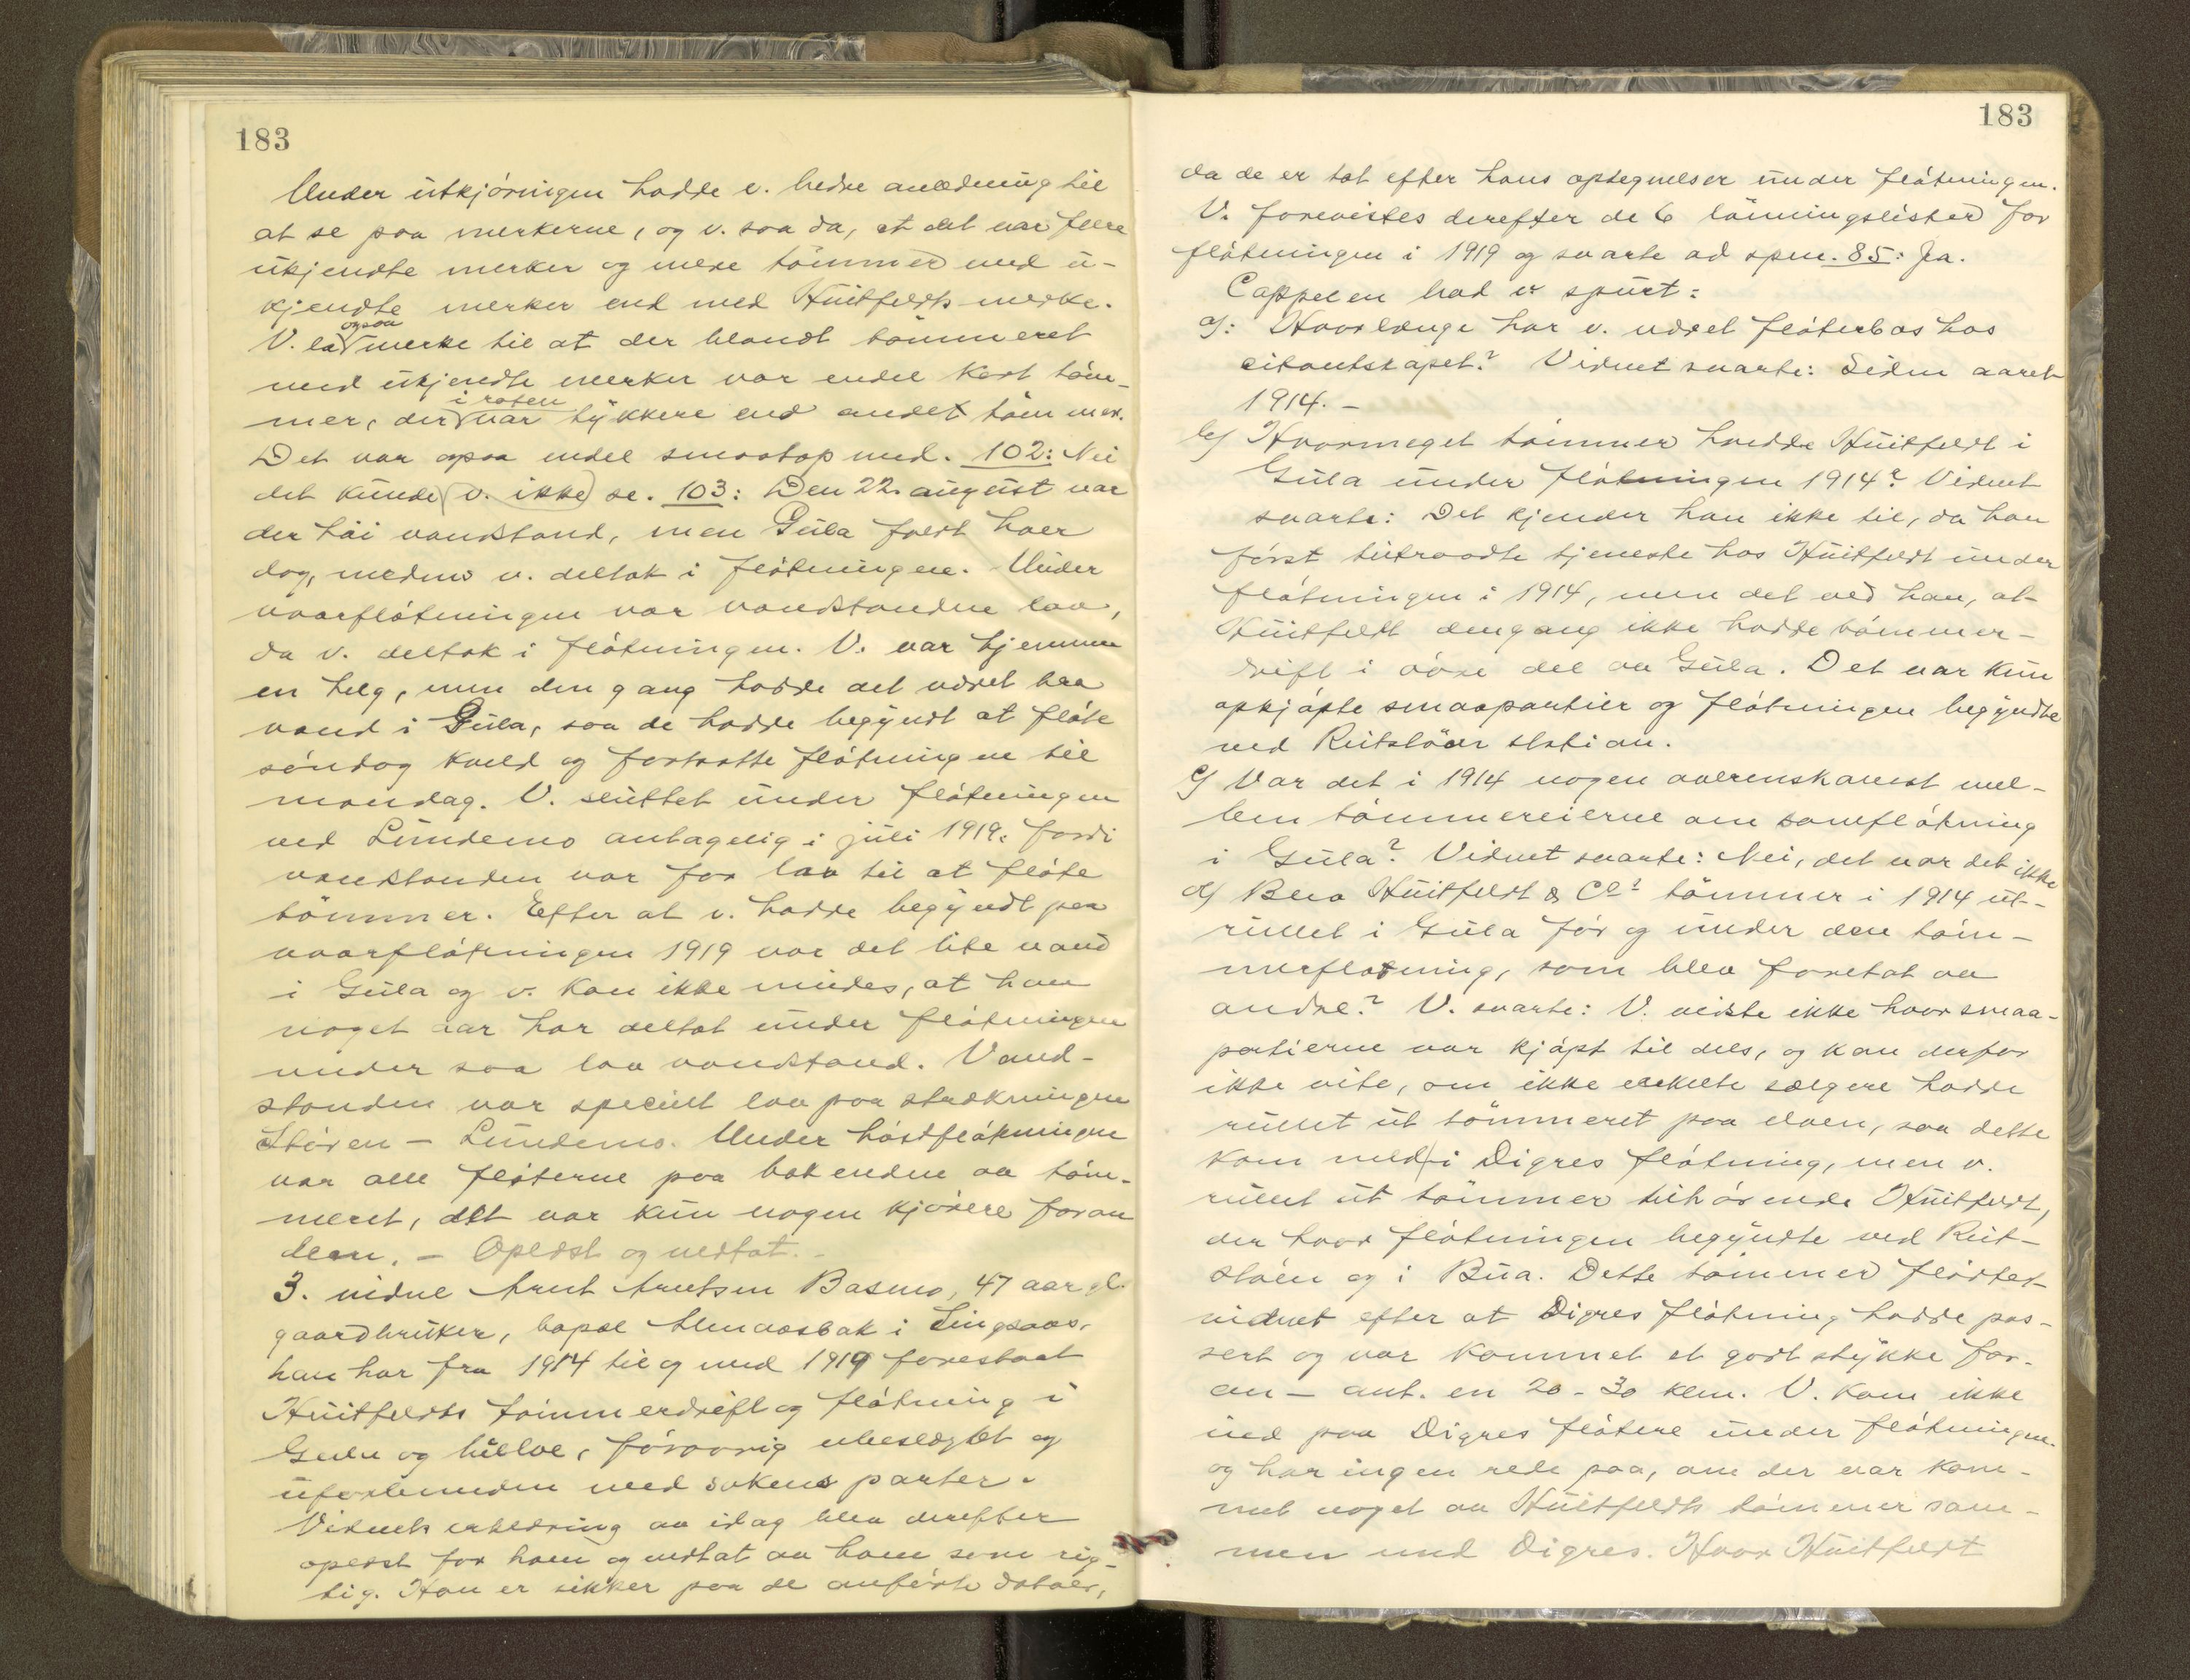 183
Under utkjöringen hadde v. bedre anledning til
at se paa merkerne, og v. saa da, at det var flere
ukjendte merker og mere tömmer med u-
kjendte merker end med Huitfeldts merke.
V. la også merke til at der blandt tömmeret
med ukjendte merker var endel kort töm-
mer, der i roten var tykkere end andet tömmer.
Det var ogsaa endel smaatop med. 102: Nei
det kunde (v. ikke) se. 103: Den 22. august var
der höi vandstand, men Gula faldt hver
dag, medens v. deltok i flötningen. Under
vaarflötningen var vandstanden lav,
da v. deltok i flötningen. V. var hjemme
en helg, men den gang hadde det været bra
vand i Gula, saa de hadde begyndt at flöte
söndag kveld og fortsatte flötningen til
mandag. V. sluttet under flötningen
ved Lundemo antagelig i juli 1919: fordi
vandstanden var for lav til at flöte
tömmer. Efter at v. hadde begyndt paa
vaarflötningen 1919 var det lite vand
i Gula og v. kan ikke mindes, at han
noget aar har deltat under flötningen
under saa lav vandstand. Vand-
standen var specielt lav paa strækningen
Stören - Lundemo. Under höstflötningen
var alle flöterne paa bakenden av töm-
meret, det var kun nogen kjörere foran
dem. - Oplæst og vedtat. -
3. vidne Arnt Arntsen Basmo, 47 aar gl.
gaardbruker, bopæl Almaasbak i Singsaas,
han har fra 1914 til og med 1919 forestaat
Huitfeldts tömmerdrift og flötning i
Gula og bielve, forövrig ubeslegtet og
uforbunden med sakens parter.
Vidnets erklæring av idag blev derefter
oplæst for ham og vedtat av ham som rig-
tig. Han er sikker paa de anförte datoer,
183
da de er tat efter hans optegnelser under flötningen.
V. forevistes derefter de 6 lönningslister for
flötningen i 1919 og svarte ad spm. 85: Ja.
Cappelen bad v. spurt:
a/: Hvorlænge har v. været flöterbas hos
citantskapet? Vidnet svarte: Siden aaret
1914. -
b/ Hvormeget tömmer hadde Huitfeldt i
Gula under flötningen 1914? Vidnet
svarte: Det kjender han ikke til, da han
först tiltraadte tjeneste hos Huitfeldt under
flötningen i 1914, men det ved han, at
Huitfeldt dengang ikke hadde tömmer-
drift i övre del av Gula. Det var kun
opkjöpte smaapartier og flötningen begyndte
ved Reitstöen station.
c/ Var det i 1914 nogen overenskomst mel-
lem tömmereierne om samflötning
i Gula? Vidnet svarte: Nei, det var det ikke
d/ Blev Huitfeldt & Co: tömmer i 1914 ut-
rullet i Gula för og under den töm-
merflötning, som blev foretat av
andre? V. svarte: V. vidste ikke hvor smaa-
partierne var kjöpt til dels, og kan derfor
ikke vite, om ikke enkelte sælgere hadde
rullet ut tömmeret paa elven, saa dette
kom med i Digres flötning, men v.
rullet ut tömmer tilhörende Huitfeldt,
der hvor flötningen begyndte ved Reit-
stöen og i Bua. Dette tömmer flötet
vidnet efter at Digres flötning hadde pas-
sert og var kommet et godt stykke for-
an - ant. en 20 - 30 klm. V. kom ikke
ind paa Digres flötere under flötningen
og har ingen rede paa, om der var kom-
met noget av Huitfeldts tömmer sam-
men med Digres. Hvor Huitfeldt